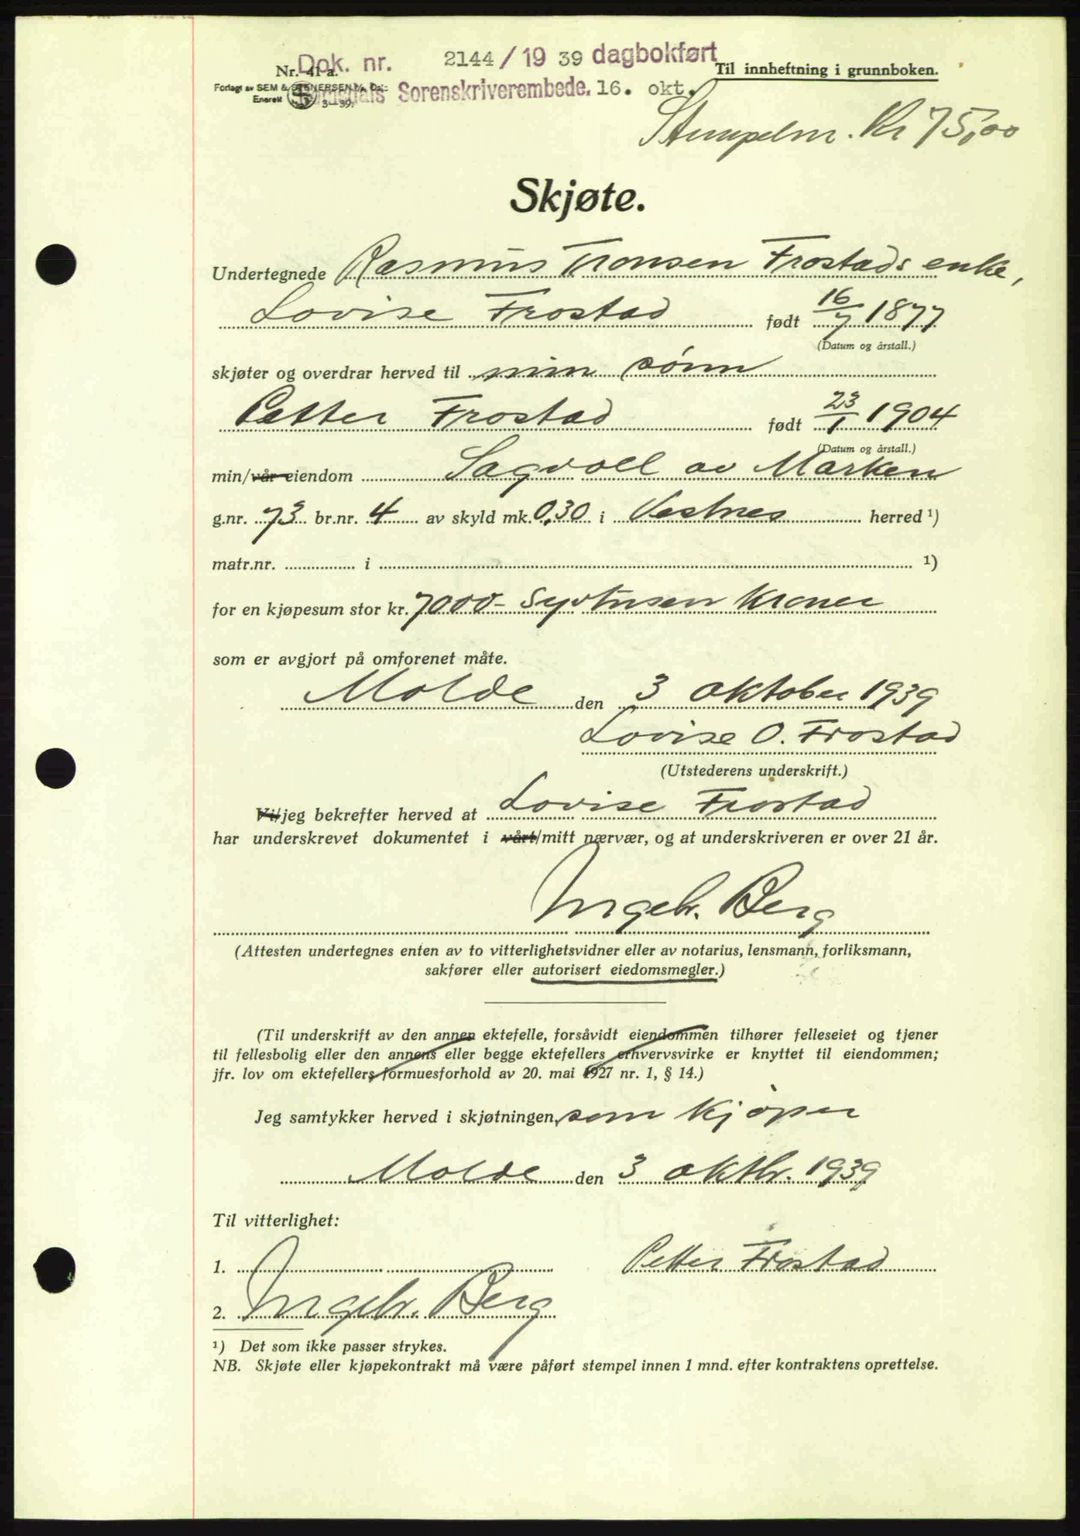 Dok. nr. 2144/19 39 dagbokført
Nr. 41 a.
Til innheftning i grunnboken.
Forlagt av SEM & STENERSEN A/S, Oslo
Sorenskriverembede. 16. okt.
Enerett 3—39.
Stempelm. Kr 75,00
Skjøte.
Undertegnede Rasmus Tronsen Frostads enke,
Lovise Frostad født 16/7 1877
(Datum og årstall.)
skjøter og overdrar herved til min sønn
Petter Frostad født 23/1 1904
(Datum og årstall.)
min/vår eiendom Sagvoll av Marken
g.nr. 73 br.nr. 4 av skyld mk. 0,30 i Vestnes herred ¹)
matr.nr. i ¹)
for en kjøpesum stor kr. 7000- Syvtusen Kroner
som er avgjort på omforenet måte.
Molde den 3 oktober 1939
Lovise O. Frostad
(Utstederens underskrift.)
Vi/jeg bekrefter herved at Lovise Frostad
har underskrevet dokumentet i vårt/mitt nærvær, og at underskriveren er over 21 år.
Ingebr. Berg
(Attesten undertegnes enten av to vitterlighetsvidner eller av notarius, lensmann, forliksmann,
sakfører eller autorisert eiedomsmegler.)
(Til underskrift av den annen ektefelle, forsåvidt eiendommen tilhører felleseiet og tjener
til fellesbolig eller den annens eller begge ektefellers erhvervsvirke er knyttet til eiendommen;
jfr. lov om ektefellers formuesforhold av 20. mai 1927 nr. 1, § 14.)
Jeg samtykker herved i skjøtningen, som kjøper
Molde den 3 oktbr. 1939
Til vitterlighet:
1. Petter Frostad
2. Ingebr. Berg
¹) Det som ikke passer strykes.
NB. Skjøte eller kjøpekontrakt må være påført stempel innen 1 mnd. efter kontraktens oprettelse.